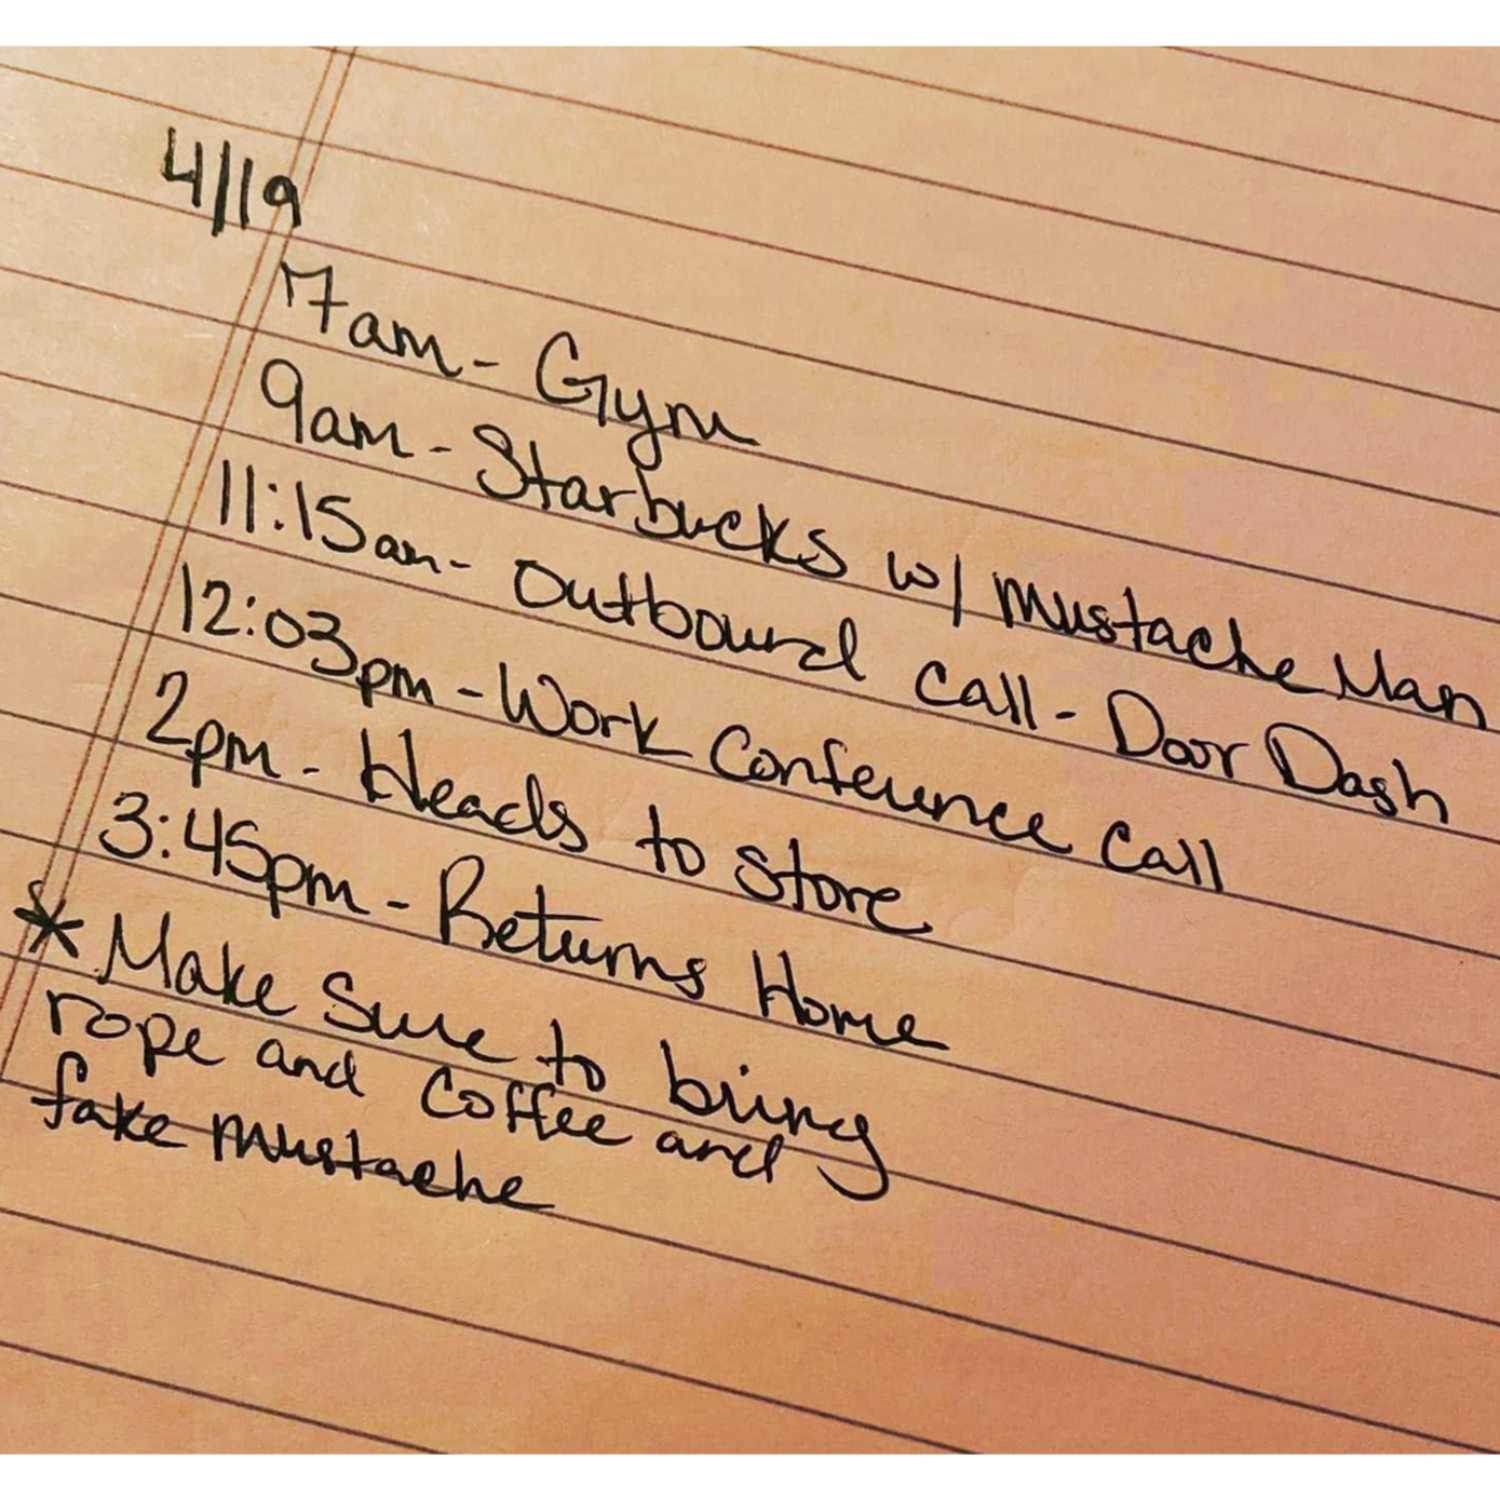 4/19
7am - Gym
9am - Starbucks w/ Mustache Man
11:15am - Outbound call - Door Dash
12:03pm - Work Conference Call
2pm - Heads to store
3:45pm - Returns Home
* Make sure to bring
rope and coffee and
fake mustache